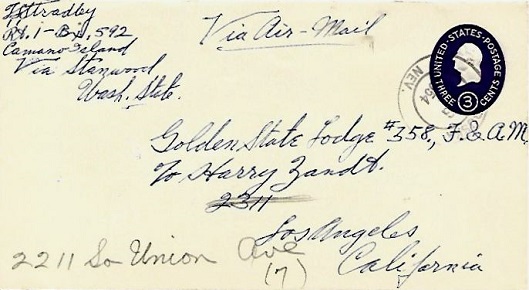 Stradley
Rt. 1-Bx, 592
Camano Island
Via Stanwood
Wash. State.
Via Air-Mail
UNITED·STATES·POSTAGE
THREE 3 CENTS
NEV.
Golden State Lodge #358, F. & A.M.
To Harry Zandt.
2311
Los Angeles
California
2211 So Union Ave
(7)